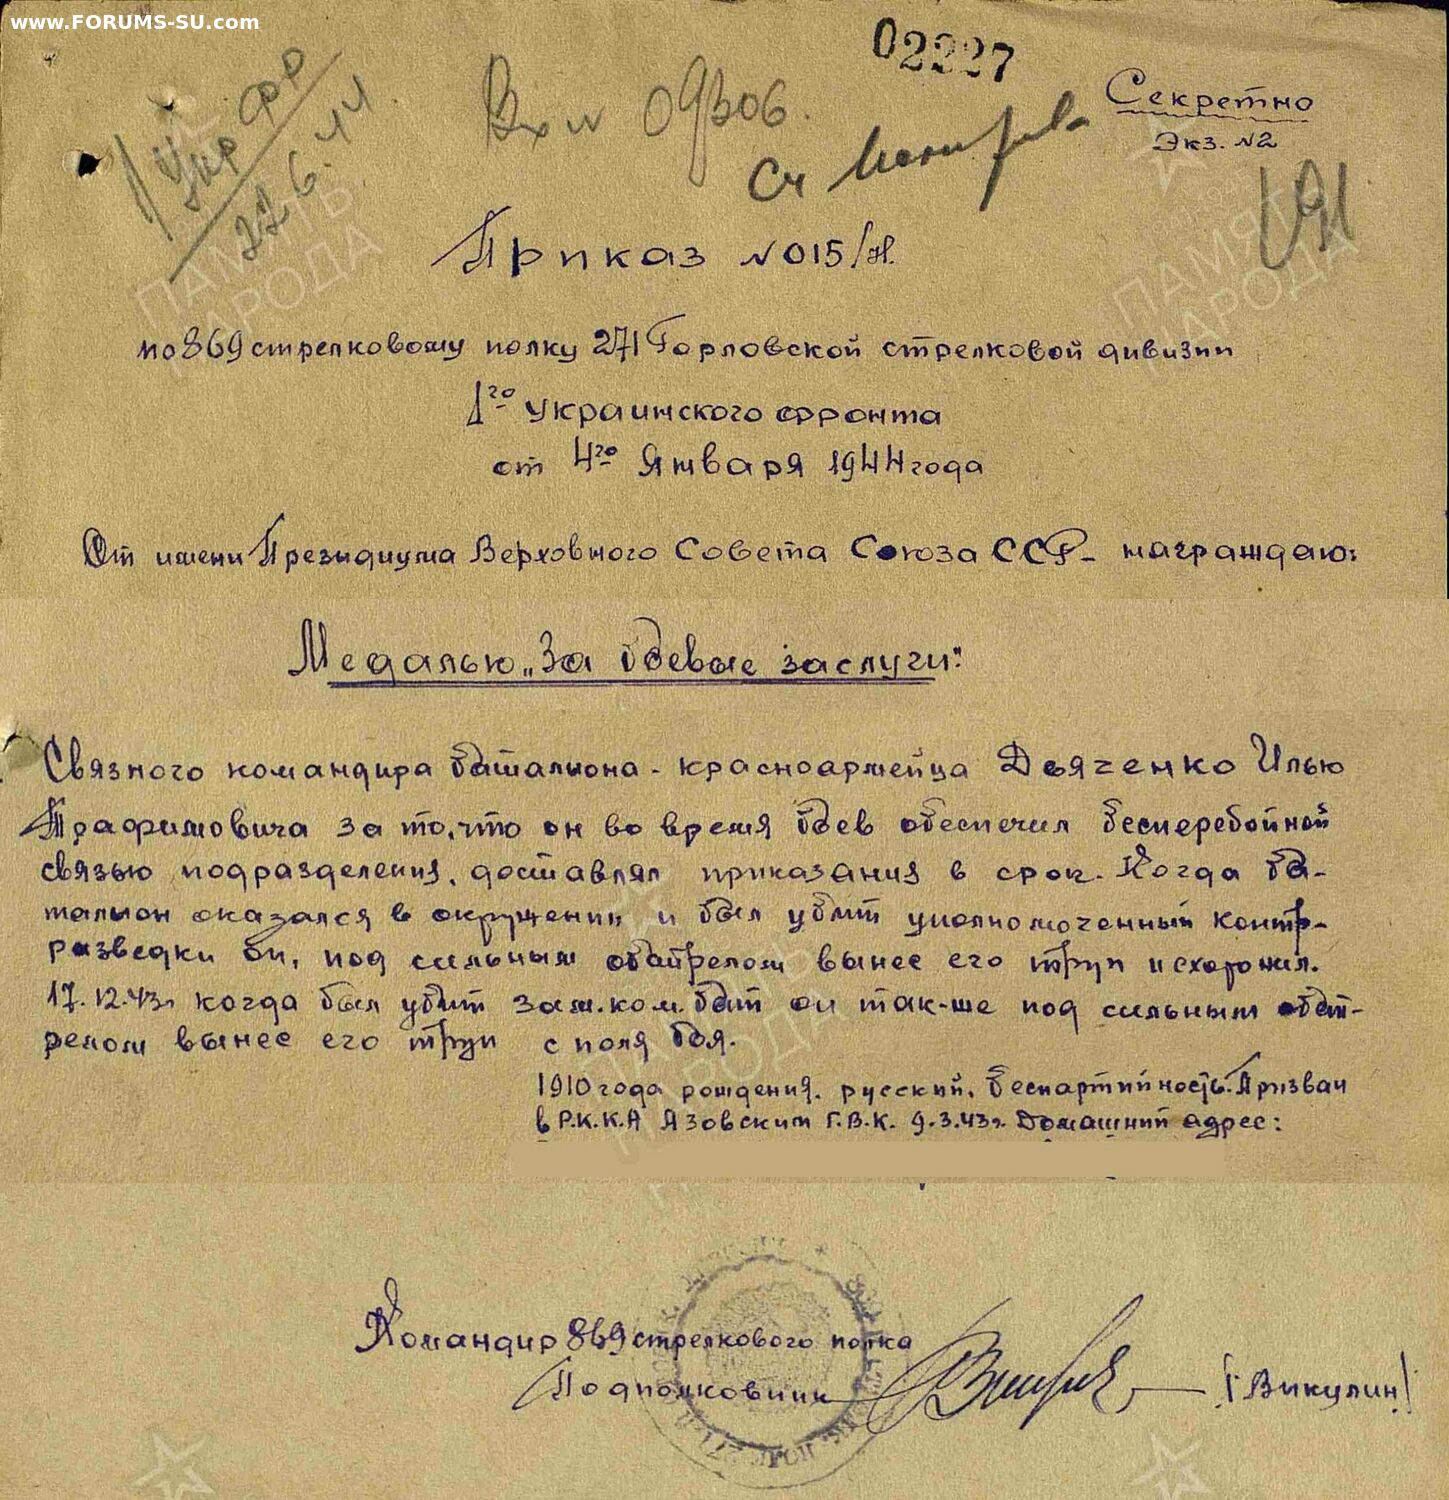 www.FORUMS-SU.com
02227
Секретно
Экз. №2
Вх № 09306.
1 Упр ФР
22.6.44
Приказ №015/н.
по 869 стрелковому полку 271 Горловской стрелковой дивизии
1го Украинского фронта
от 4го Января 1944 года
От имени Президиума Верховного Совета Союза ССР - награждаю:
Медалью „За боевые заслуги":
Связного командира баталиона - красноармейца Дьяченко Илью
Трафимовича за то, что он во время боев обеспечил бесперебойной
связью подразделения, доставлял приказания в срок. Когда ба-
талион оказался в окружении и был убит уполномоченный контр-
разведки он, под сильным обстрелом вынес его труп и схоронил.
17.12.43г когда был убит зам.ком.бат он так-же под сильным обст-
релом вынес его труп с поля боя.
1910 года рождения, русский, беспартийность. Призван
в Р.К.К.А Язовским Г.В.К. 9.3.43г. Домашний адрес:
Командир 869 стрелкового полка
Подполковник — /Викулин/
ПАМЯТЬ НАРОДА
ПАМЯТЬ НАРОДА